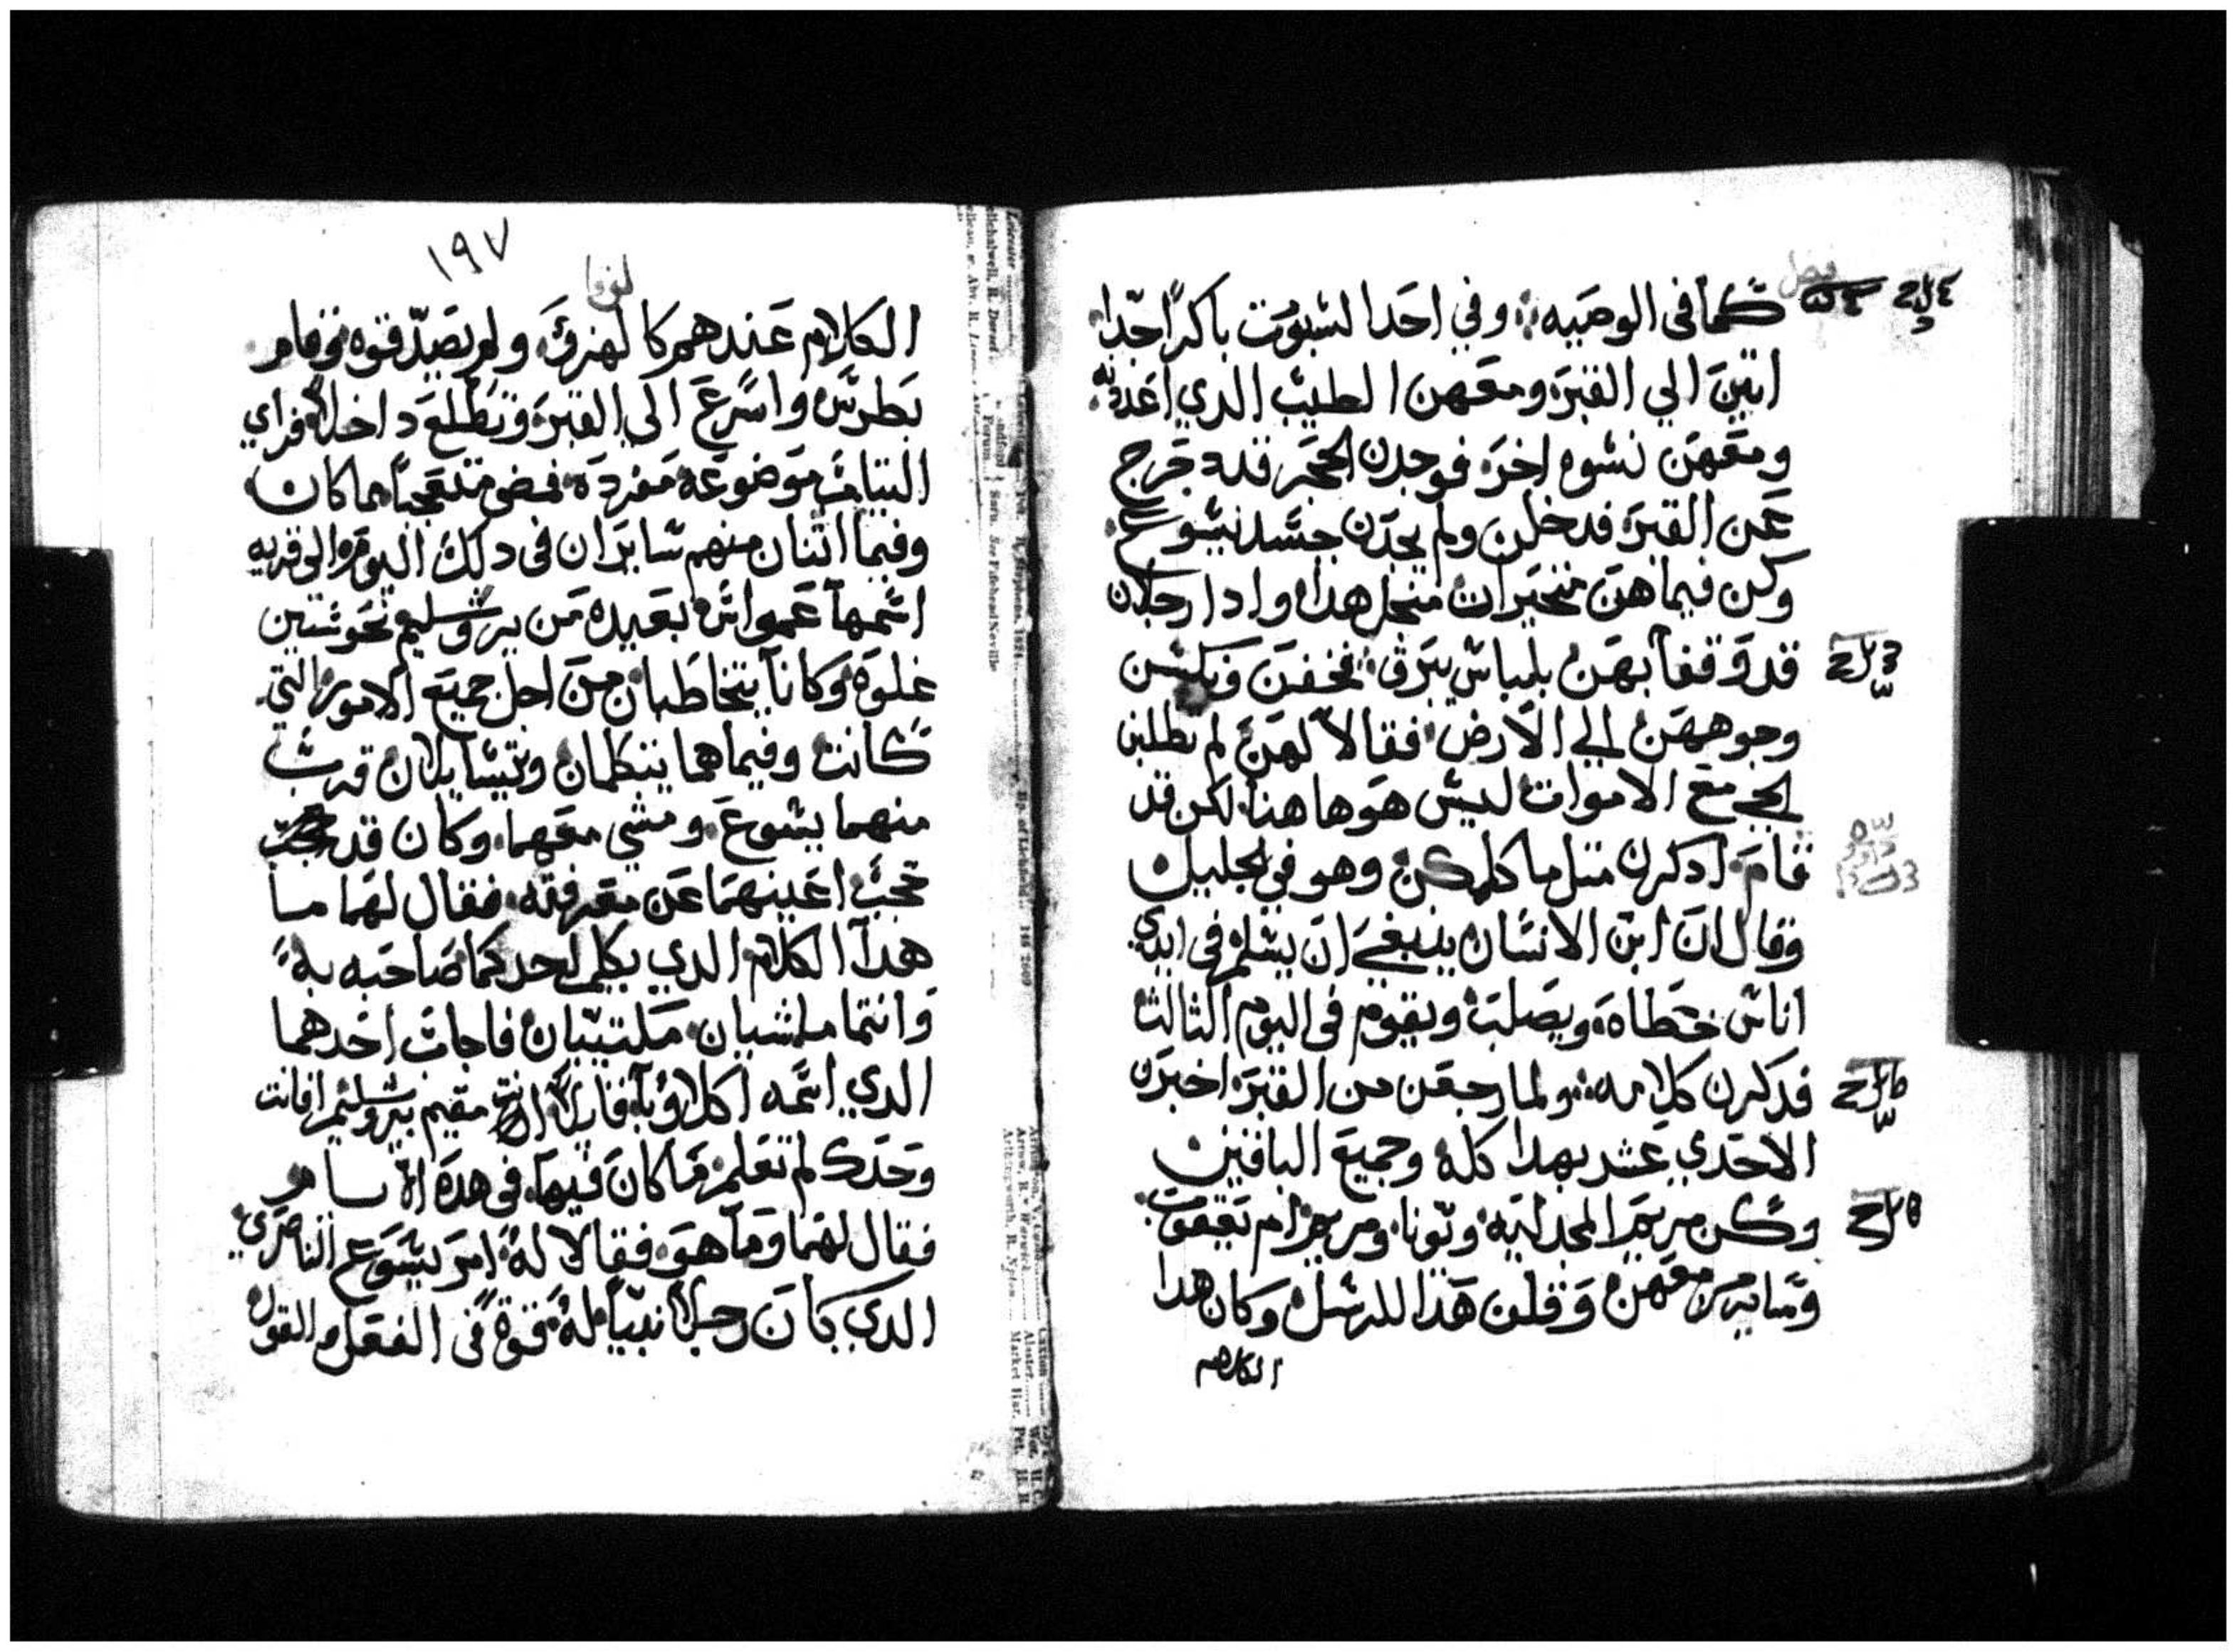 كما في الوصيه؛ وفي احد السبوت باكرًا جدا
اتين الي القبر ومعهن الطيب الدي اعددنه
ومعهن نسوه اخر فوجدن الحجر قد دحرج
عن القبر فدخلن ولم يجدن جسد يسوع
وكن فيما هن متحيرات من اجل هدا وادا رجلان
قد وقفا بهن بلباس يبرق فخفن ونكسن
وجوههن الي الارض فقالا لهن لم تطلبن
الحي مع الاموات ليس هو هاهنا لكن قد
قام ادكرن متل ما كلمكن وهو في الجليل
وقال ان ابن الانسان ينبغي ان يسلم في ايدي
اناس خطاه ويصلب ويقوم في اليوم الثالث
فدكرن كلامه ولما رجعن من القبر اخبرن
الاحدي عشر بهدا كله وجميع الباقين
وكن مريم المجدليه ويونا ومريم ام يعقوب
وساير من معهن وقلن هدا للرسل وكان هدا
الكلام
١٩٧
لوقا
الكلام عندهم كالهزؤ ولم يصدقوه وقام
بطرس واسرع الي القبر وتطلع داخلا فراي
التياب موضوعه مفرده فمضي متعجبا مما كان
وفيما اثنان منهم سايران في دلك اليوم الي قريه
اسمها عمواس بعيده من يروشليم نحو ستين
غلوه وكانا يتخاطبان من اجل جميع الامور التي
كانت وفيما هما يتكلمان ويتسايلان قرب
منهما يسوع ومشي معهما وكان قد
حجب اعينهما عن معرفته فقال لهما ما
هدا الكلام الدي يكلم احدكما صاحبه به
وانتما ماشيان مكتيبان فاجاب احدهما
الدي اسمه اكلاوبا قايلا انت مقيم بيروشليم افانت
وحدك لم تعلم ما كان فيها في هده الايام
فقال لهما وما هو فقالا له امر يسوع الناصري
الدي كان رجلا نبيا له قوة في الفعل والقول